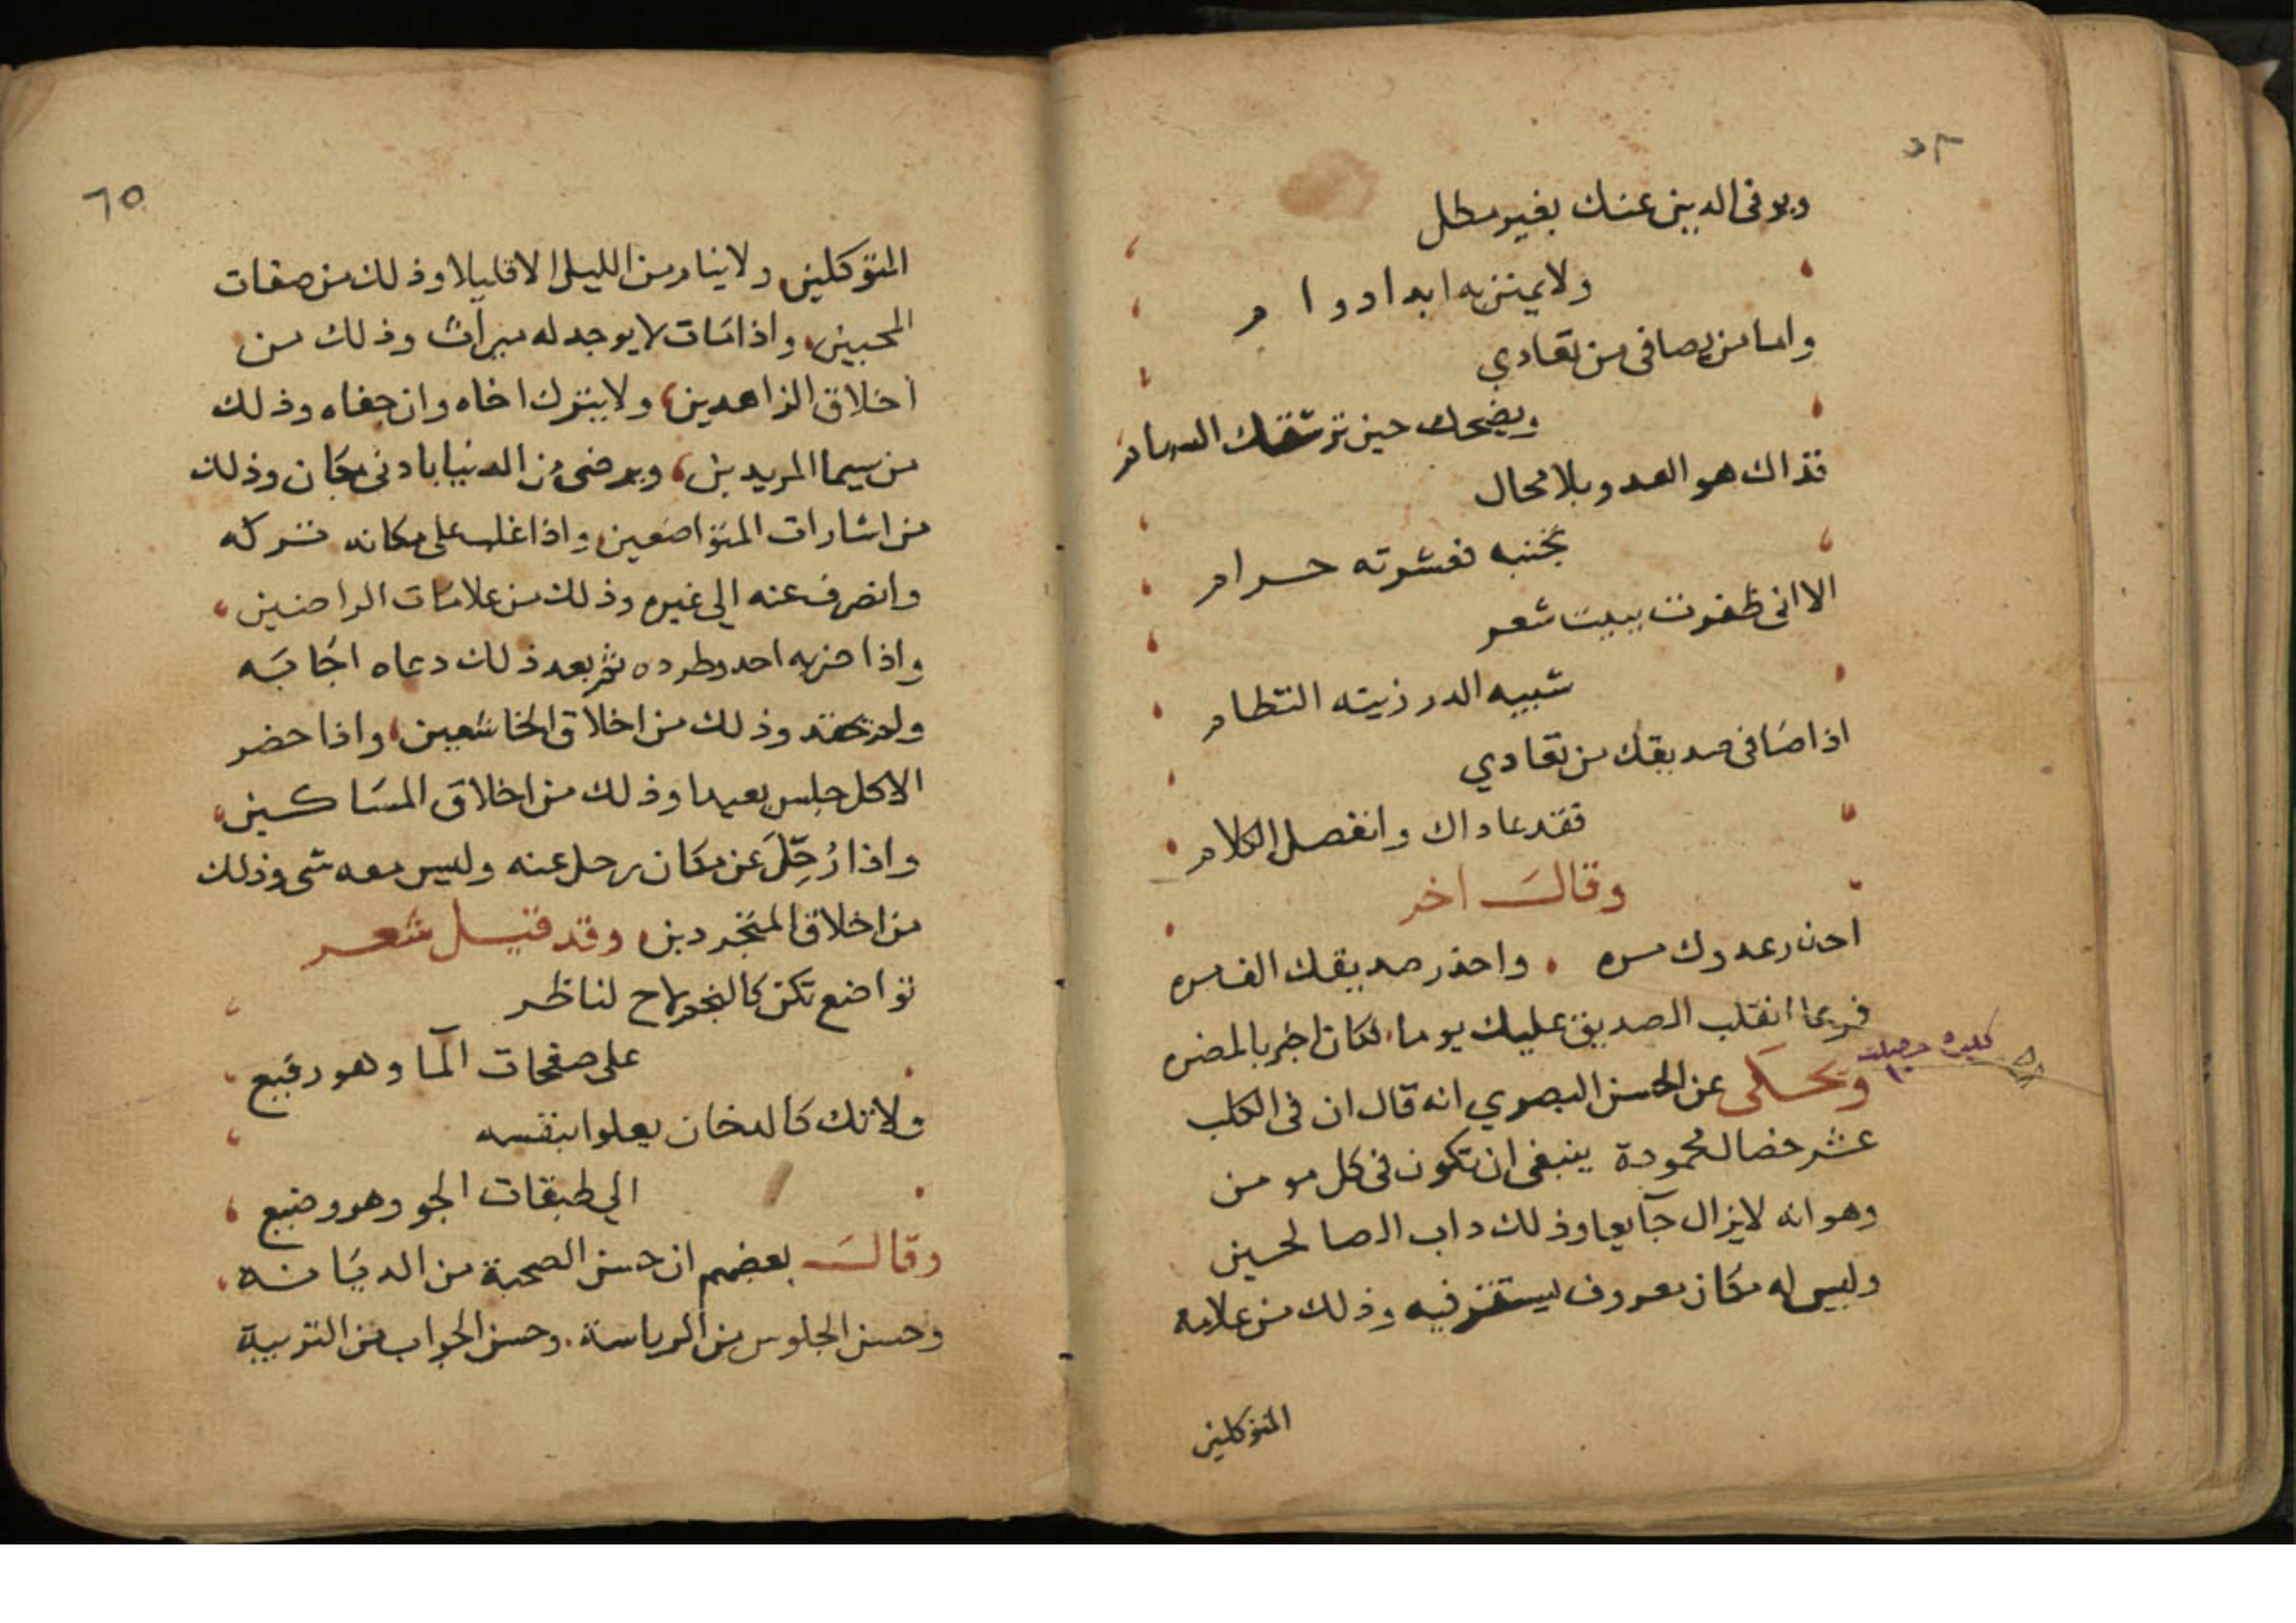 ويوفي الدين عنك بغير مطل
ولا يمنن به ابدا دوا م
واما من يصافي من تعادي
ويضحك حين ترشقك السهام
فذاك هو العدو بلا محال
تجنبه فعشرته حرام
الا اني ظفرت ببيت شعر
شبيه الدر زينه النظام
اذا صافى صديقك من تعادي
فقد عاداك وانفصل الكلام
وقال اخر
احذر عدوك مره . واحذر صديقك الف مره
فربما انقلب الصديق عليك يوما فكان اخبر بالمضره
ويحكى عن الحسن البصري انه قال ان في الكلب
عشر خصال محمودة ينبغي ان تكون في كل مومن
وهو انه لا يزال جآيعا وذلك داب الصالحين
وليس له مكان معروف يستقر فيه وذلك من علامه
المتوكلين
٦٥
المتوكلين ولا ينام من الليل الا قليلا وذلك من صفات
المحبين، واذا مات لا يوجد له ميراث وذلك من
اخلاق الزاهدين، ولا يترك اخاه وان جفاه وذلك
من سيما المريدين، ويرضى من الدنيا بادنى مكان وذلك
من اشارات المتواضعين، واذا غلب على مكانه تركه
وانصرف عنه الى غيره وذلك من علامات الراضين،
واذا ضربه احد وطرده ثم بعد ذلك دعاه اجابه
ولم يحقد وذلك من اخلاق الخاشعين، واذا حضر
الاكل جلس بعيدا وذلك من اخلاق المساكين،
واذا رُحِّلَ عن مكان رحل عنه وليس معه شي وذلك
من اخلاق المتجردين، وقد قيل شعر
تواضع تكن كالنجم لاح لناظر
على صفحات المآ وهو رفيع
ولا تك كالدخان يعلوا بنفسه
الى طبقات الجو وهو وضيع
وقال بعضهم ان حسن الصحبة من الديانه،
وحسن الجلوس من الرياسة. وحسن الجواب من التربية